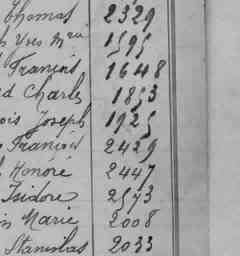 Thomas 2329
Yves Mie 1595
François 1648
Charles 1853
Joseph 1925
François 2429
Honoré 2447
Isidore 2573
Marie 2008
Stanislas 2033